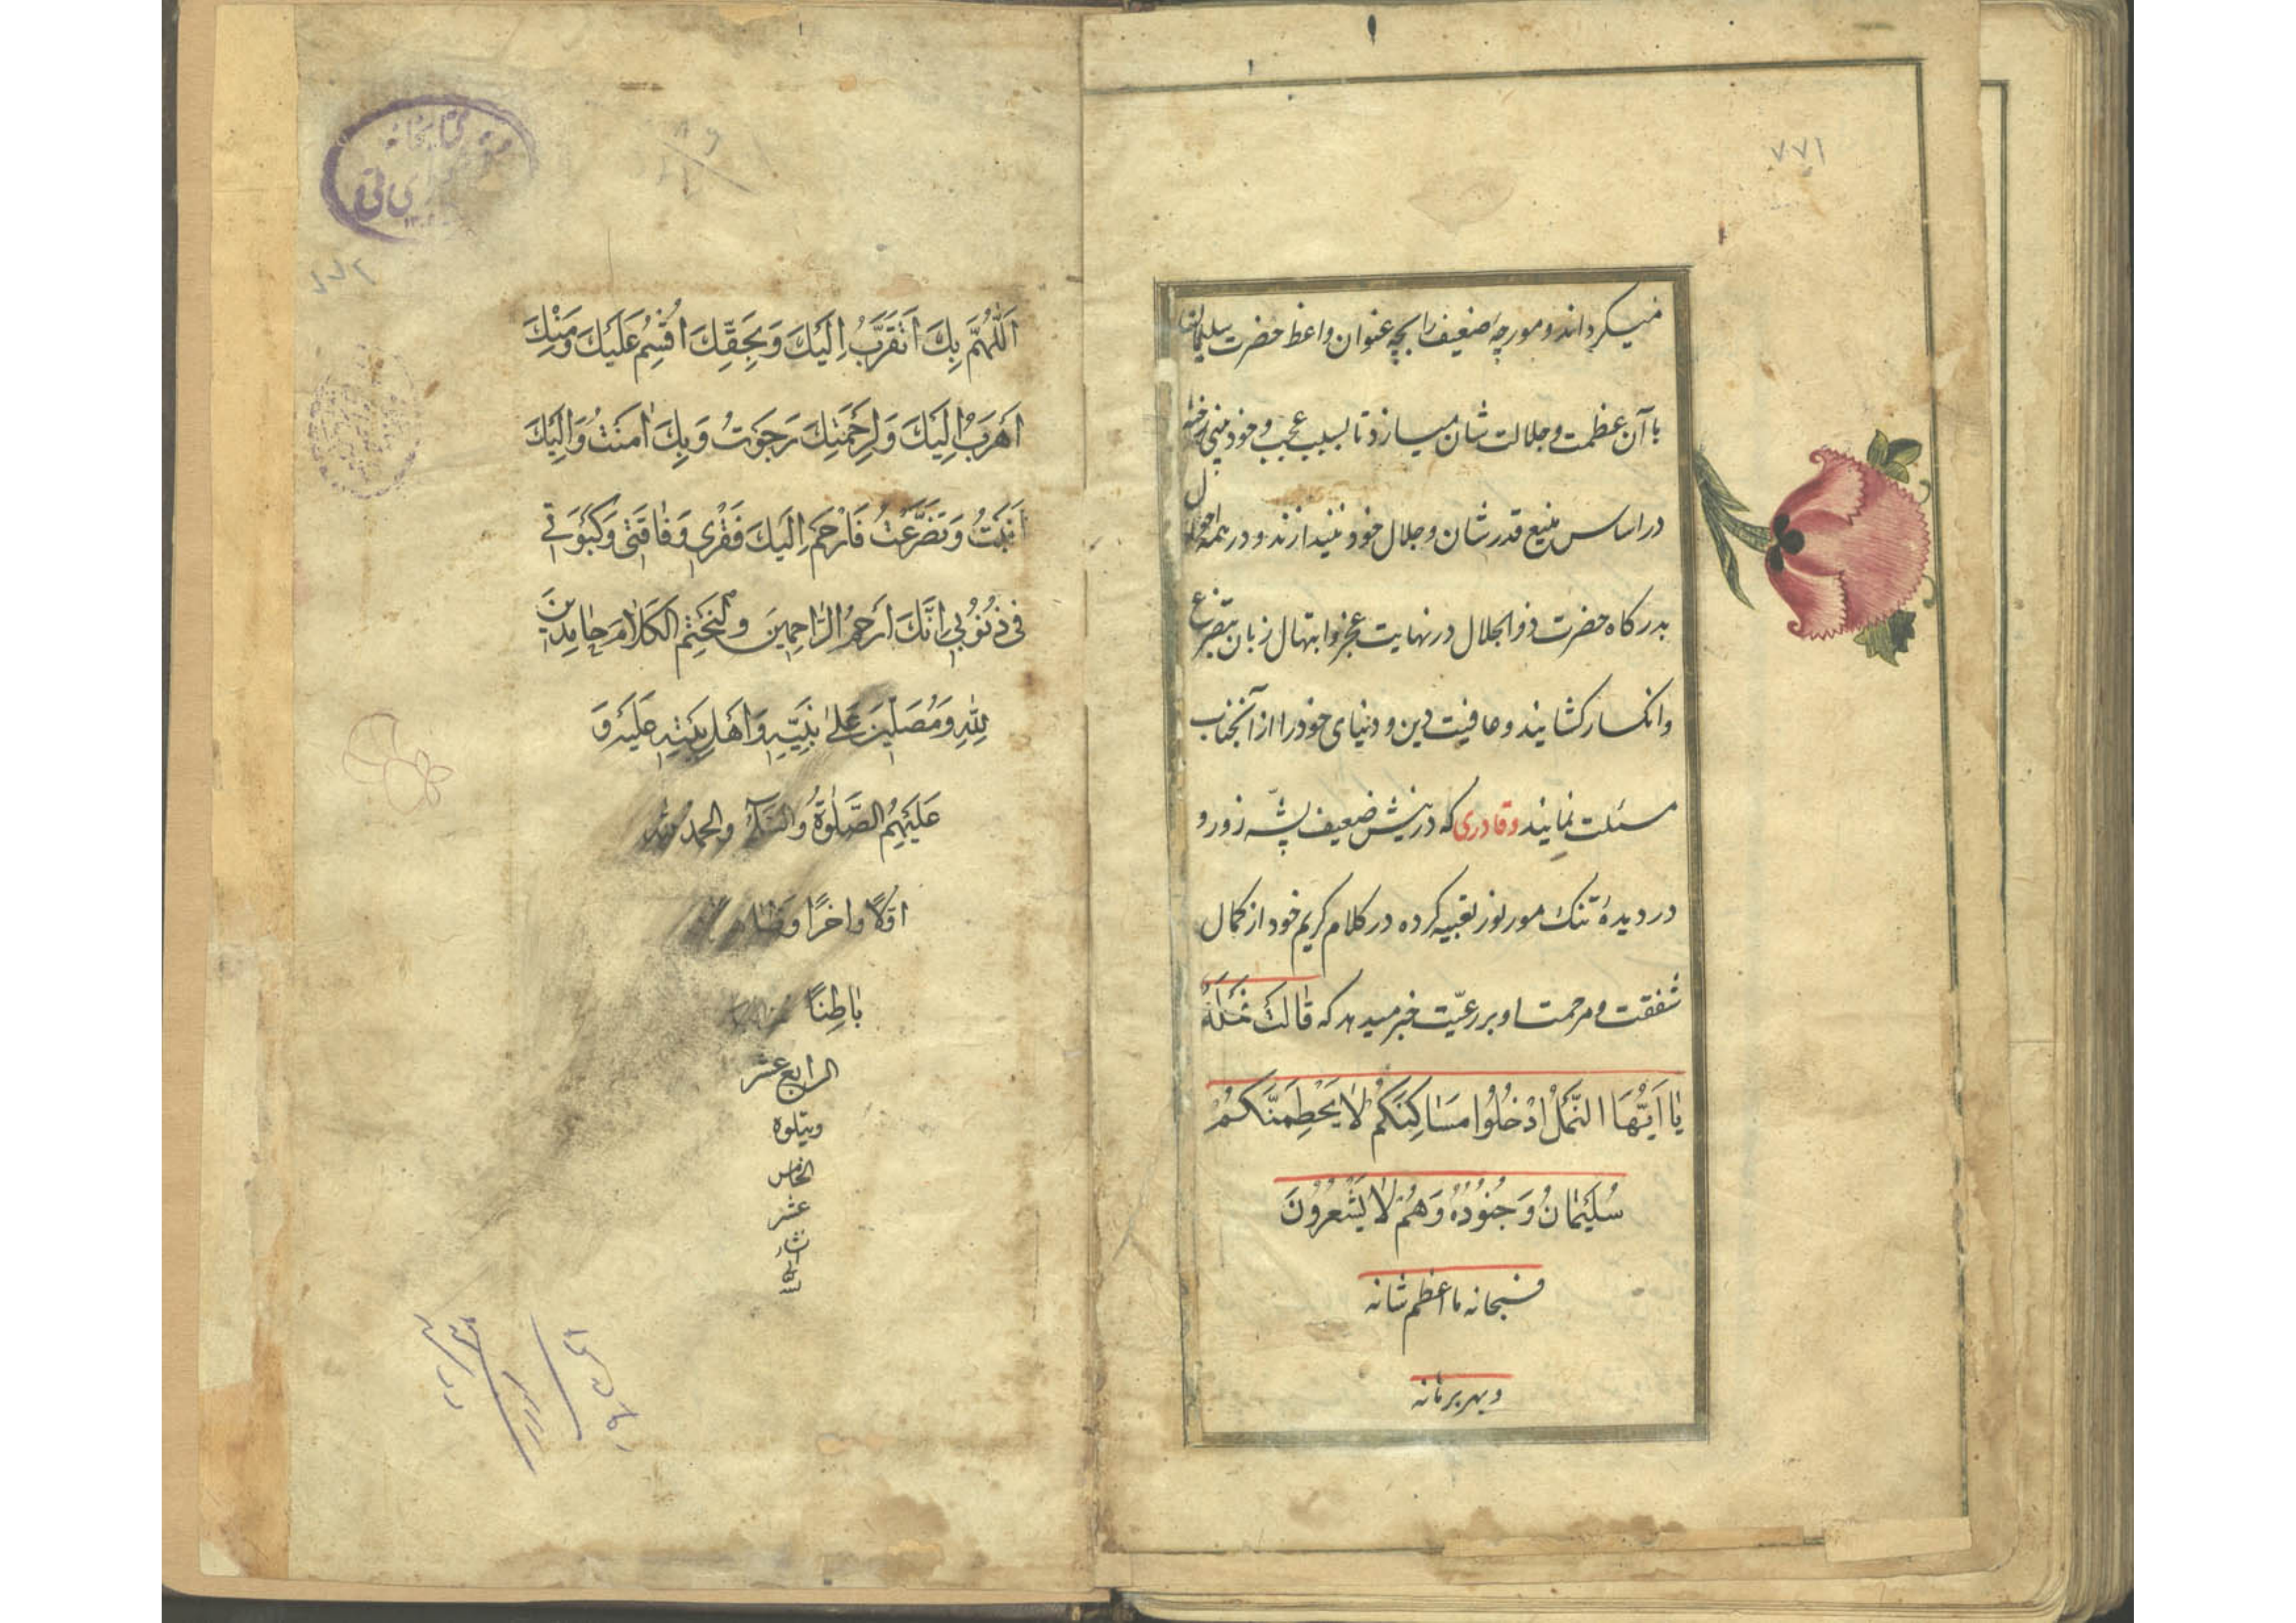 ۷۷۱
میکرداند و مورچهٔ ضعیف را بچه عنوان واعظ حضرت سلیمان
با آن عظمت و جلالت شان میسازد تا بسبب عجب و خود بینی
در اساس منیع قدر شان و جلال خود نیندازند و در همه احوال
بدرکاه حضرت ذوالجلال در نهایت عجز و ابتهال زبان بتضرع
و انکسار کشایند و عافیت دین و دنیای خود را از آنجناب
مسئلت نمایند و قادری که در نیش ضعیف پشّه زور و
در دیدهٔ تنک مور نور تعبیه کرده در کلام کریم خود از کمال
شفقت و مرحمت او بر رعیّت خبر میدهد که قٰالَتْ نَمْلَةٌ
یٰا اَیُّهَا النَّمْلُ ادْخُلُوا مَسٰاکِنَکُمْ لٰا یَحْطِمَنَّکُمْ
سُلَیْمٰانُ وَ جُنُودُهُ وَ هُمْ لٰا یَشْعُرُونَ
فسبحانه ما اعظم شانه
و بهر برهانه
اَللّٰهُمَّ بِكَ اَتَقَرَّبُ اِلَيْكَ وَ بِحَقِّكَ اُقْسِمُ عَلَيْكَ وَ مِنْكَ
اَهْرَبُ اِلَيْكَ وَ لِرَحْمَتِكَ رَجَوْتُ وَ بِكَ اٰمَنْتُ وَ اِلَيْكَ
اَنَبْتُ وَ تَضَرَّعْتُ فَارْحَمْ اِلَيْكَ فَقْرِي وَ فٰاقَتِي وَ كَبْوَتِي
فِي ذُنُوبِي اِنَّكَ اَرْحَمُ الرّٰاحِمِينَ و لنَخْتِمُ الكَلٰامَ حٰامِدِينَ
لِلّٰهِ وَ مُصَلِّينَ عَلٰى نَبِيِّهِ وَ اَهْلِ بَيْتِهِ عَلَيْهِ وَ
عَلَيْهِمُ الصَّلٰوةُ وَ السَّلٰامُ و الحمد لله
اوّلًا و اخرًا و ظاهرًا
بٰاطِنًا
الرابع عشر
ويتلوه
الخامس
عشر
انشاء
الله
كتابخانه